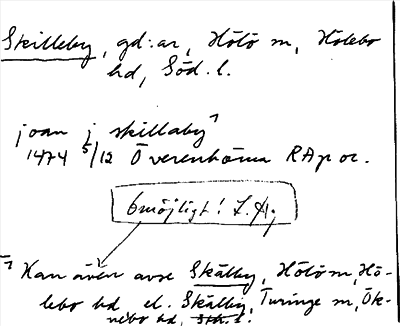 Skilleby, gd:ar, Hölö sn, Hölebo
hd, Söd. l.
joan j skillaby ⁊
1474 5/12 Överenhörna RAp or.
Omöjligt! L.Hj
⁊ Kan även avse Skälby, Hölö sn, Hö-
lebo hd, el. Skälby, Turinge sn, Ök-
nebo hd, Sth. l.